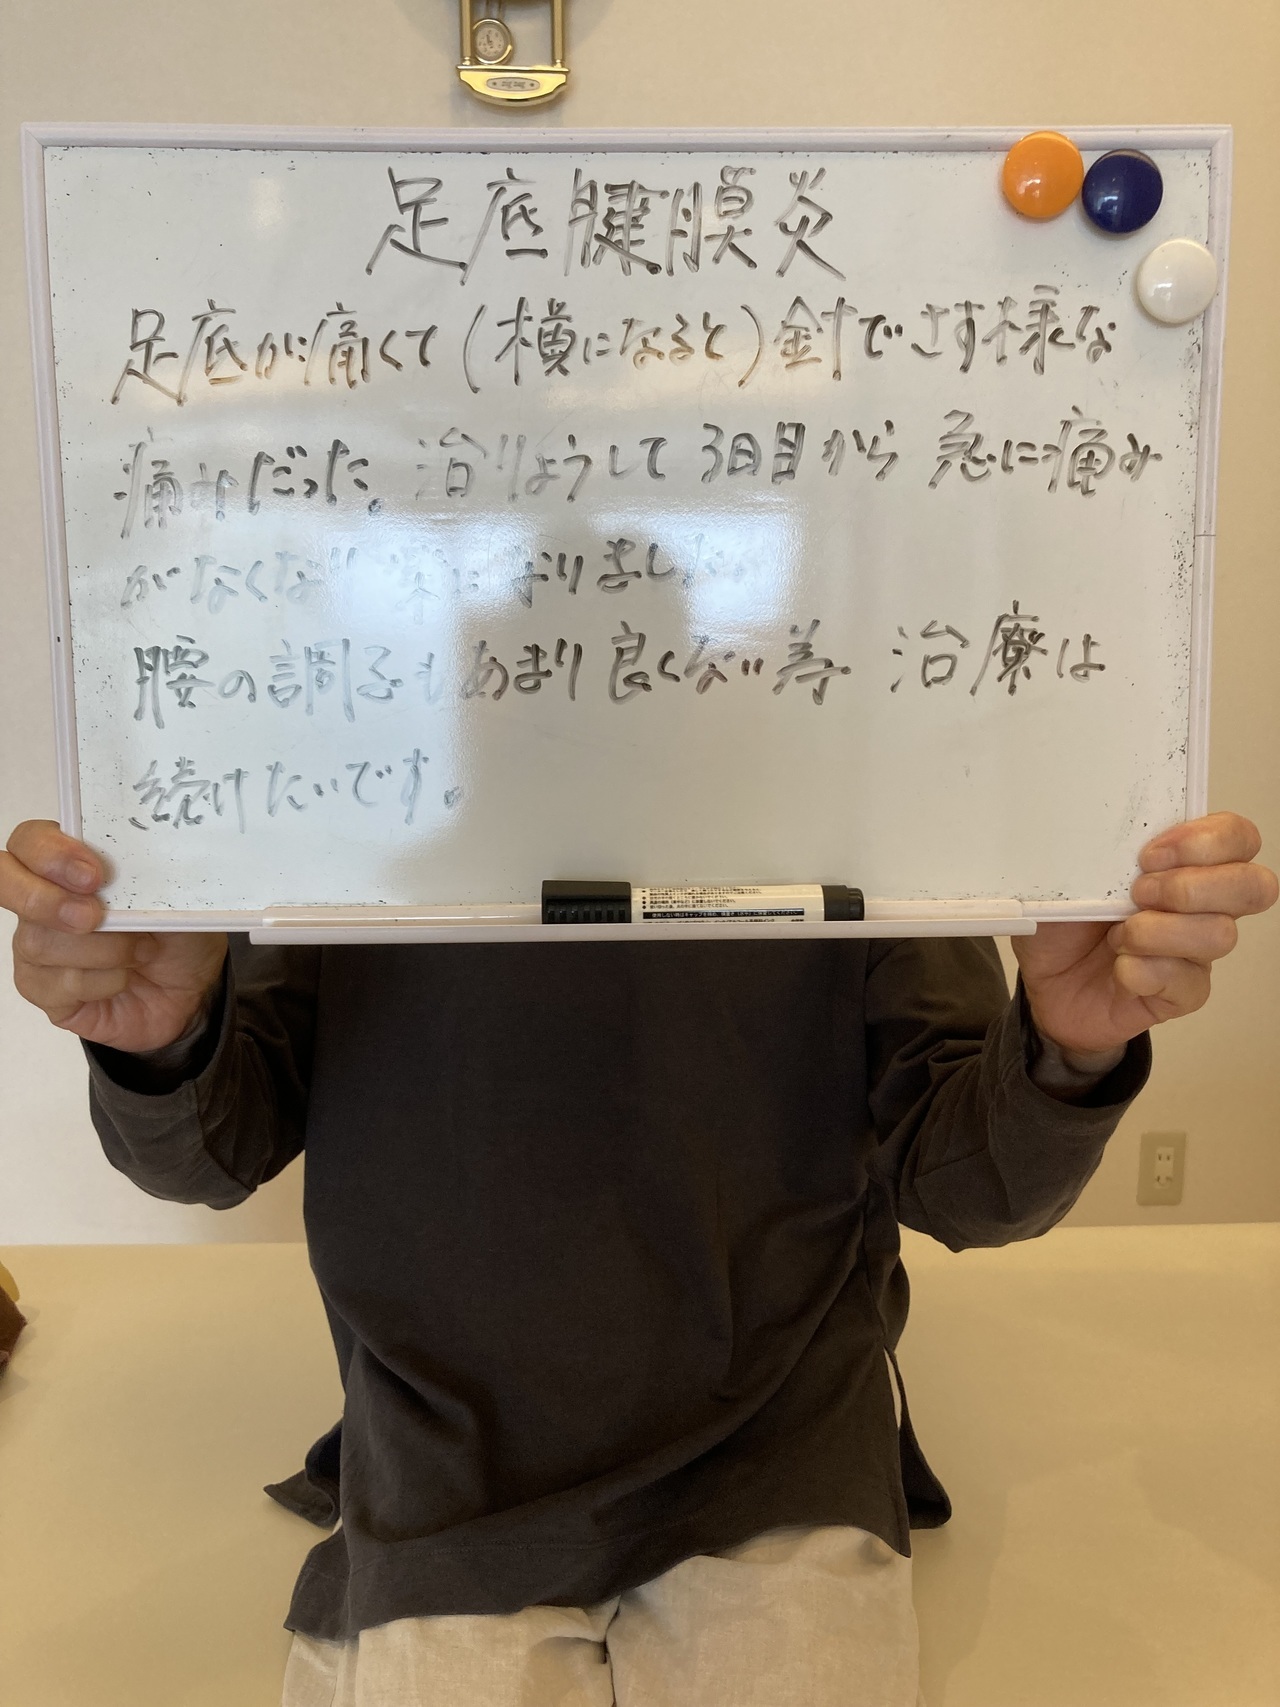 足底腱膜炎
足底が痛くて(横になると)針でさす様な
痛みだった。治りょうして3日目から 急に痛み
がなくなり 楽になりました。
腰の調子もあまり良くない為 治療は
続けたいです。